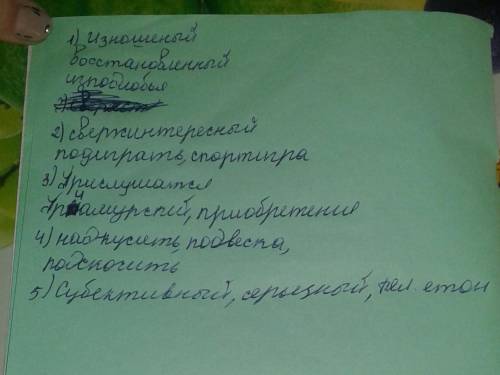 1) Изношеный
восстановленный
изподлобья
2) сверхинтересный
подиграть, спортигра
3) Прислушатся
Приамурский, приобретения
4) надкусить, подвеска,
подскочить
5) Субективный, серьезный, фел етон